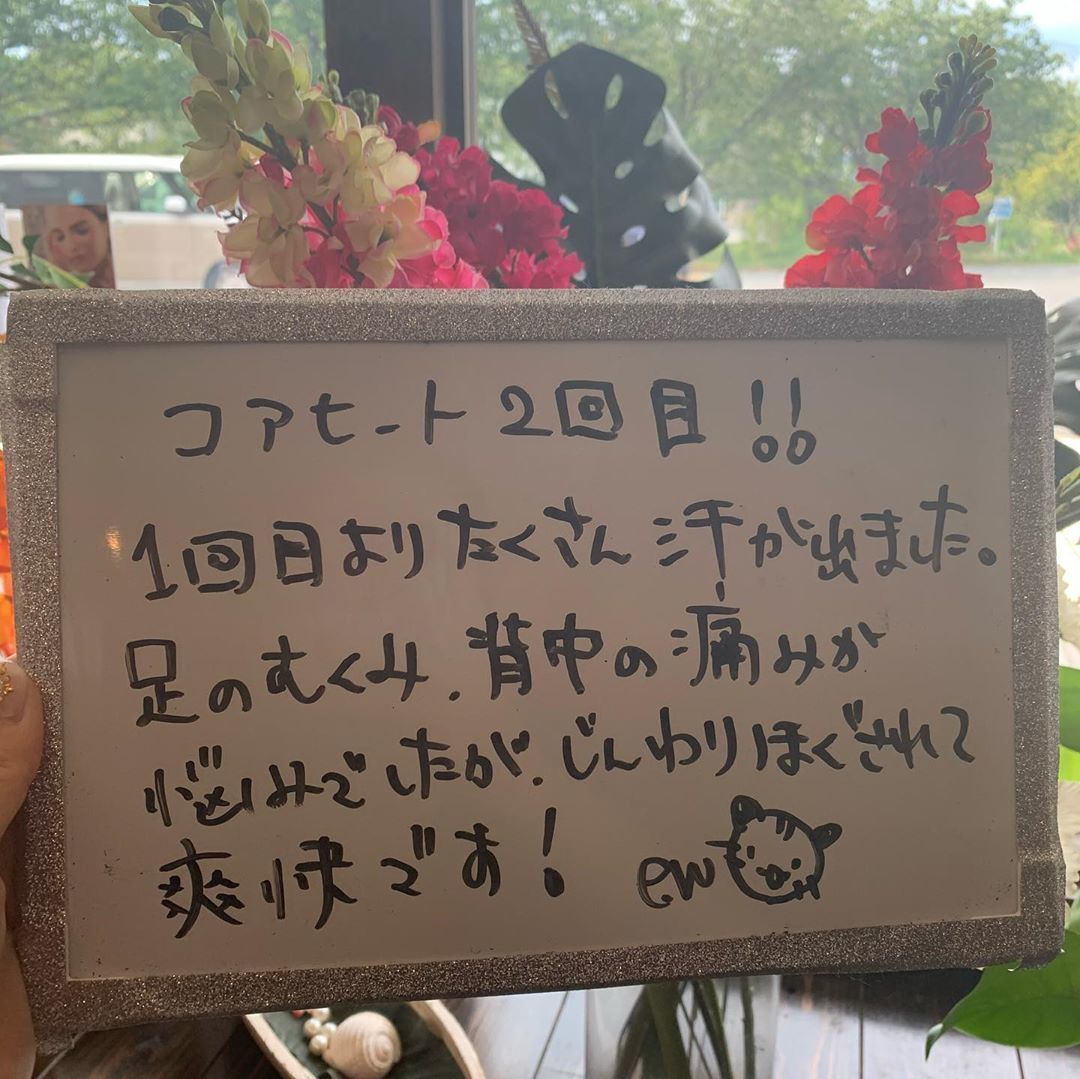 コアヒート2回目!!
1回目よりたくさん汗が出ました。
足のむくみ、背中の痛みが
悩みでしたが、じんわりほぐされて
爽快です!